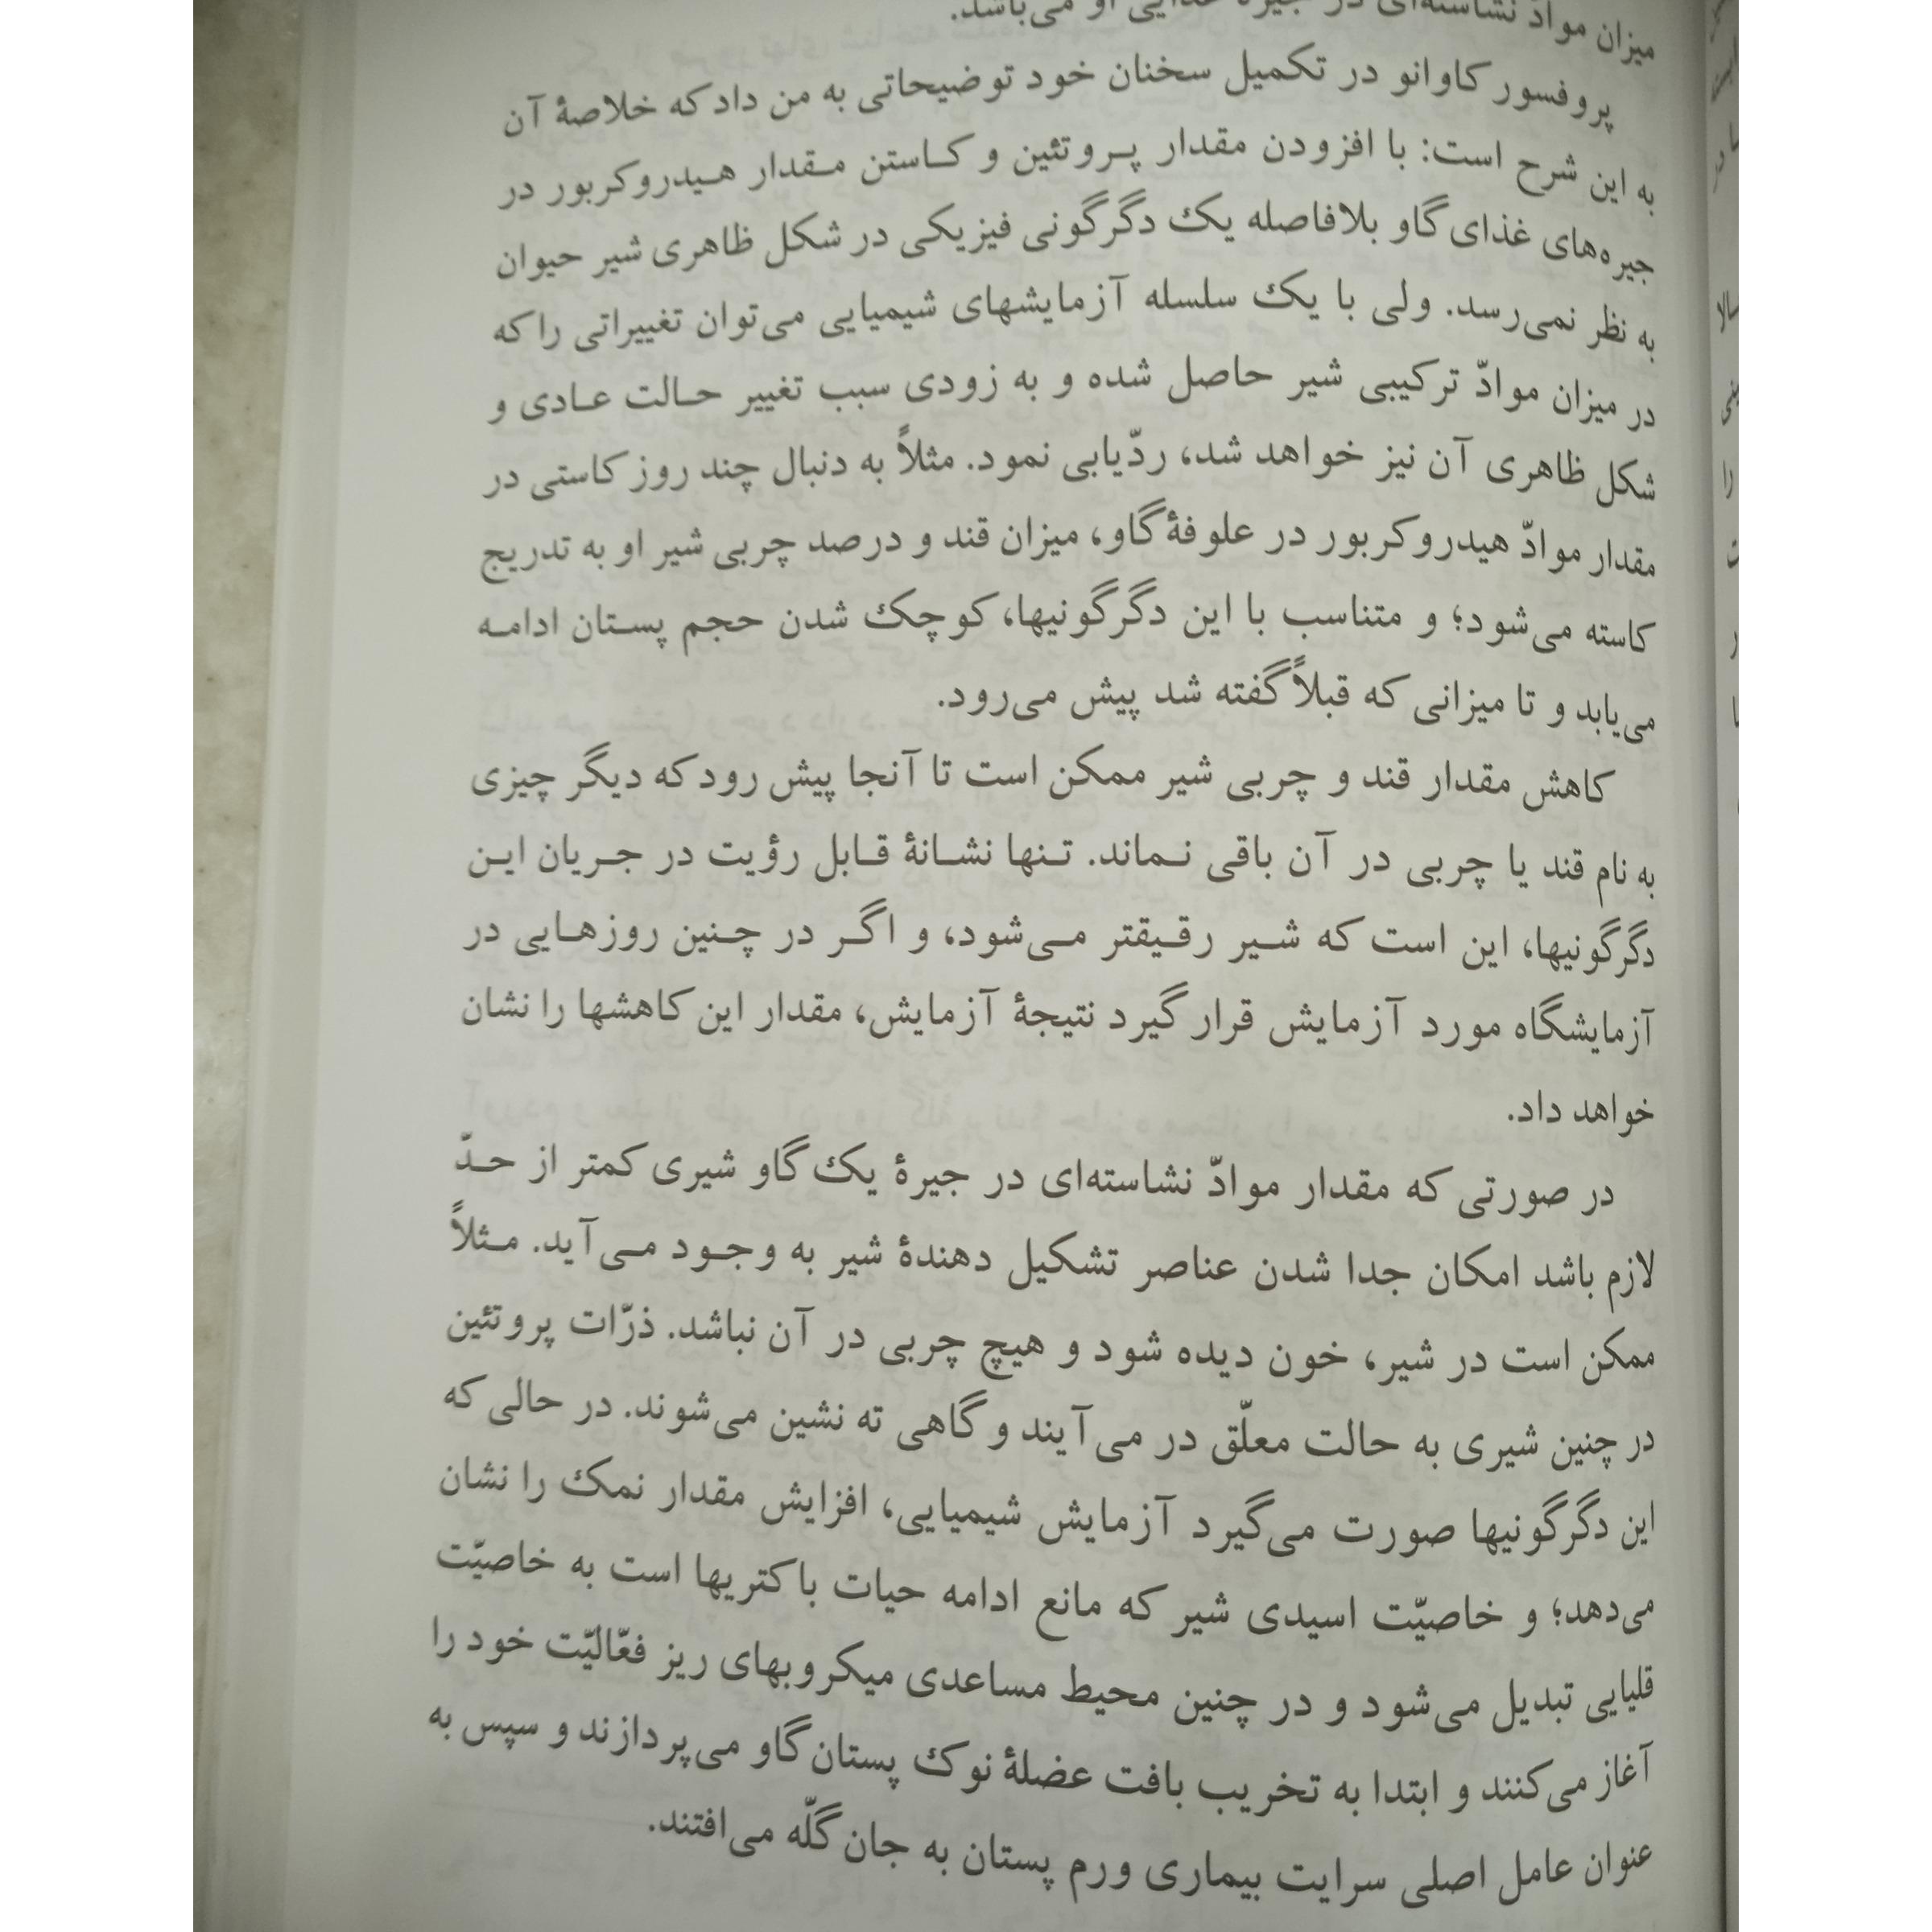 میزان موادّ نشاسته‌ای در جیرهٔ غذایی او می‌باشد.
پروفسور کاوانو در تکمیل سخنان خود توضیحاتی به من داد که خلاصهٔ آن
به این شرح است: با افزودن مقدار پروتئین و کاستن مقدار هیدروکربور در
جیره‌های غذای گاو بلافاصله یک دگرگونی فیزیکی در شکل ظاهری شیر حیوان
به نظر نمی‌رسد. ولی با یک سلسله آزمایشهای شیمیایی می‌توان تغییراتی را که
در میزان موادّ ترکیبی شیر حاصل شده و به زودی سبب تغییر حالت عادی و
شکل ظاهری آن نیز خواهد شد، ردّیابی نمود. مثلاً به دنبال چند روز کاستی در
مقدار موادّ هیدروکربور در علوفهٔ گاو، میزان قند و درصد چربی شیر او به تدریج
کاسته می‌شود؛ و متناسب با این دگرگونیها، کوچک شدن حجم پستان ادامه
می‌یابد و تا میزانی که قبلاً گفته شد پیش می‌رود.
کاهش مقدار قند و چربی شیر ممکن است تا آنجا پیش رود که دیگر چیزی
به نام قند یا چربی در آن باقی نماند. تنها نشانهٔ قابل رؤیت در جریان این
دگرگونیها، این است که شیر رقیقتر می‌شود، و اگر در چنین روزهایی در
آزمایشگاه مورد آزمایش قرار گیرد نتیجهٔ آزمایش، مقدار این کاهشها را نشان
خواهد داد.
در صورتی که مقدار موادّ نشاسته‌ای در جیرهٔ یک گاو شیری کمتر از حدّ
لازم باشد امکان جدا شدن عناصر تشکیل دهندهٔ شیر به وجود می‌آید. مثلاً
ممکن است در شیر، خون دیده شود و هیچ چربی در آن نباشد. ذرّات پروتئین
در چنین شیری به حالت معلّق در می‌آیند و گاهی ته نشین می‌شوند. در حالی که
این دگرگونیها صورت می‌گیرد آزمایش شیمیایی، افزایش مقدار نمک را نشان
می‌دهد؛ و خاصیّت اسیدی شیر که مانع ادامه حیات باکتریها است به خاصیّت
قلیایی تبدیل می‌شود و در چنین محیط مساعدی میکروبهای ریز فعّالیّت خود را
آغاز می‌کنند و ابتدا به تخریب بافت عضلهٔ نوک پستان گاو می‌پردازند و سپس به
عنوان عامل اصلی سرایت بیماری ورم پستان به جان گلّه می‌افتند.